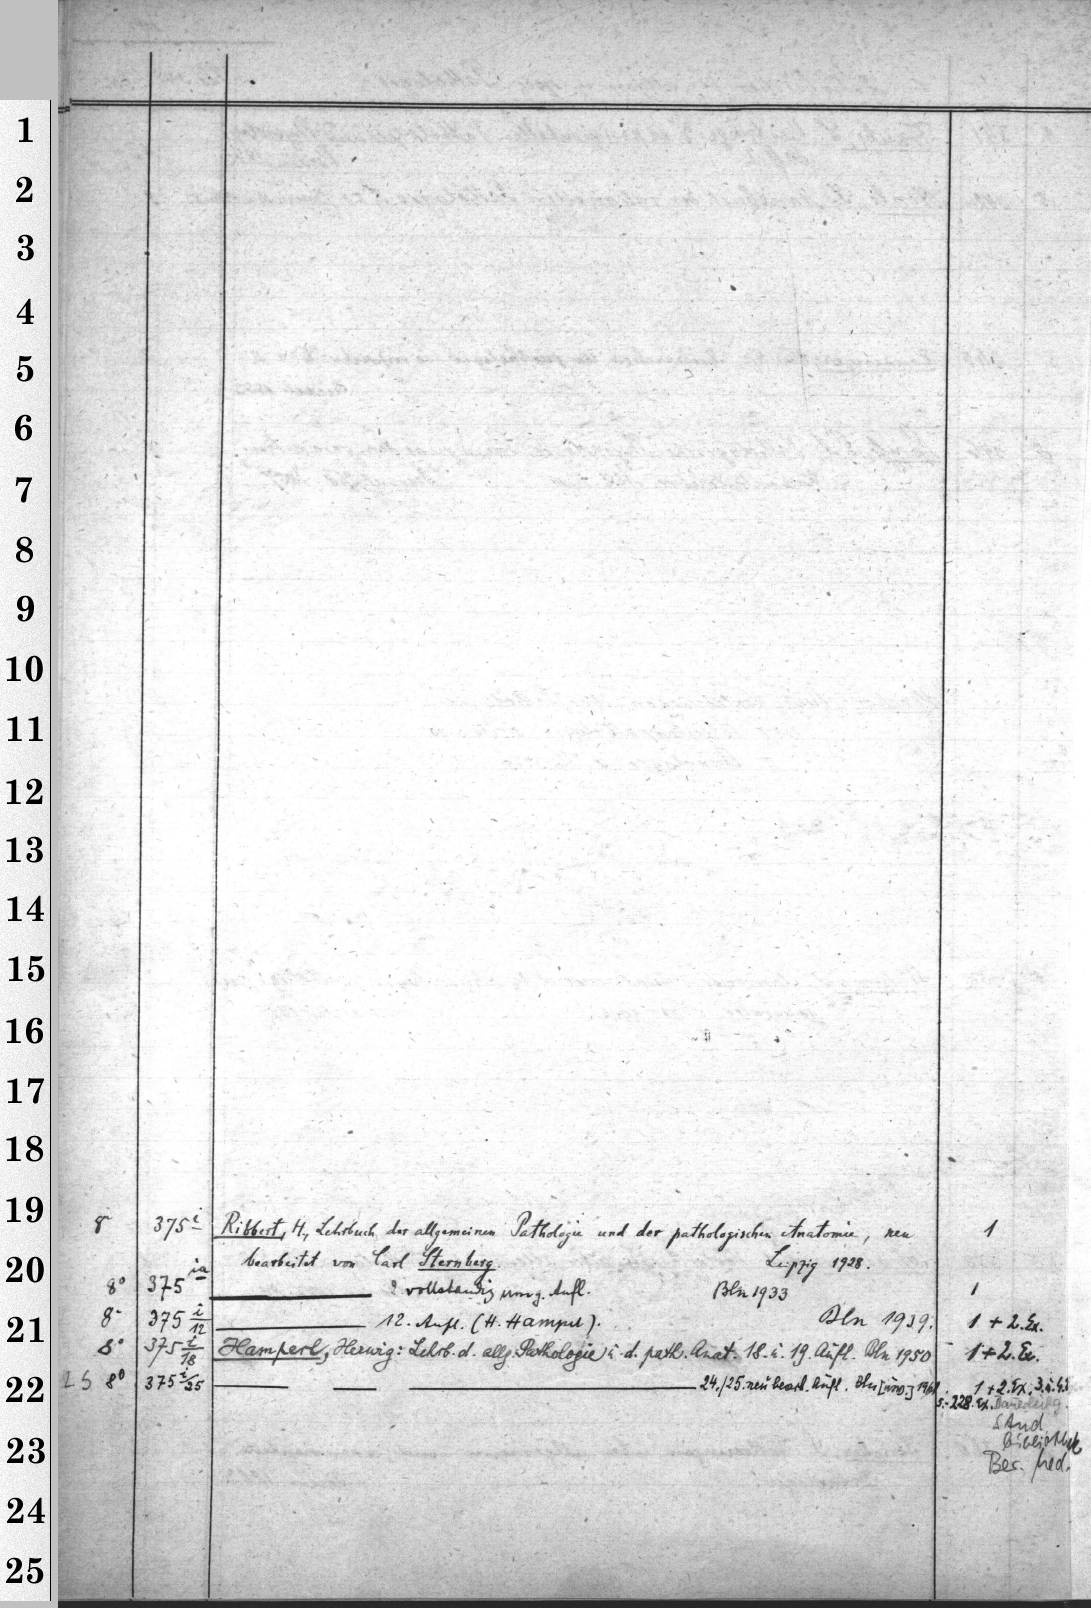 1
2
3
4
5
6
7
8
9
10
11
12
13
14
15
16
17
18
19
8° 375 i Ribbert, H., Lehrbuch der allgemeinen Pathologie und der pathologischen Anatomie, neu 1
bearbeitet von Carl Sternberg. Leipzig 1928.
20
8° 375 ia 2 vollständig umg. Aufl. Bln 1933 1
21
8° 375 i/12 12. Aufl. (H. Hamperl). Bln 1939. 1 + 2. Ex.
8° 375 i/18 Hamperl, Herwig: Lehrb. d. allg. Pathologie u. d. path. Anat. 18. u. 19. Aufl. Bln 1950 1 + 2. Ex.
22
LS 8° 375 i/25 24./25. neu bearb. Aufl. Bln [usw.] 1 + 2. Ex. 3. u. 4.
5.-228. Ex.
Stud
bibliothek
23
Ber. Med.
24
25